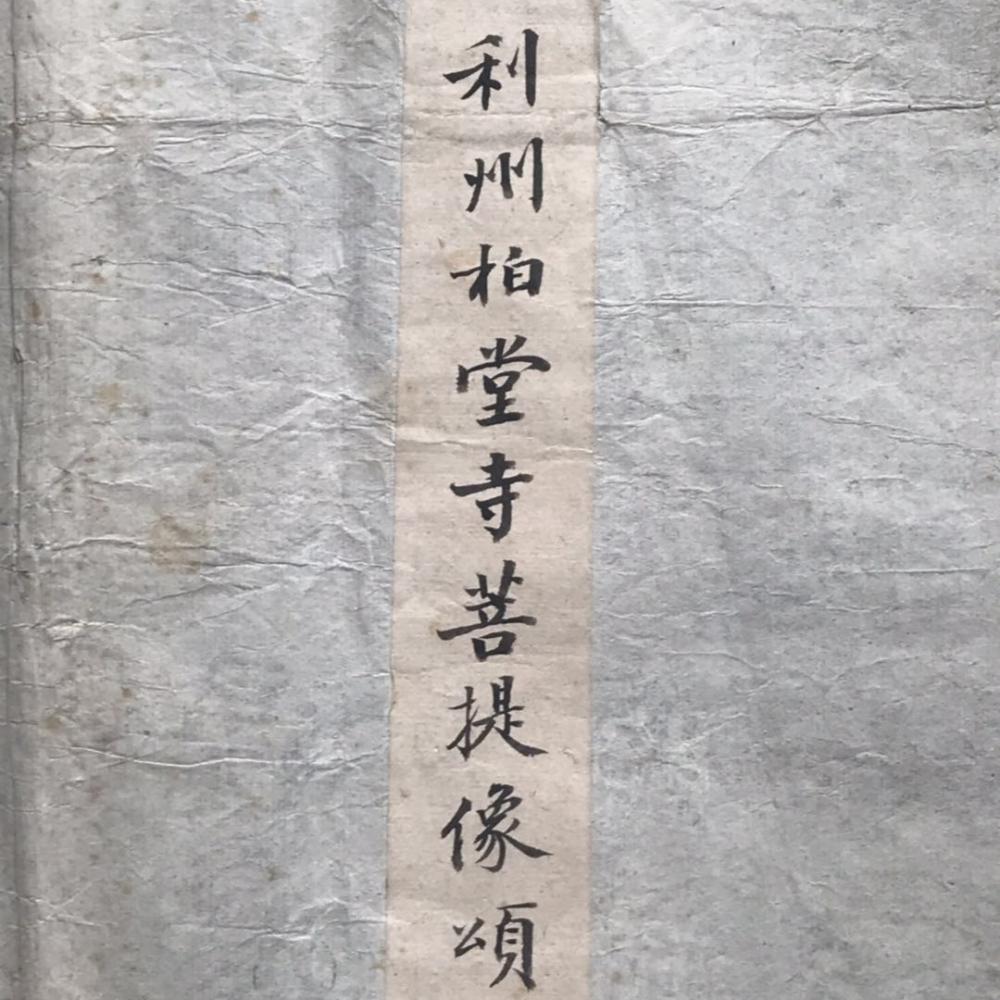 利州柏堂寺菩提像頌